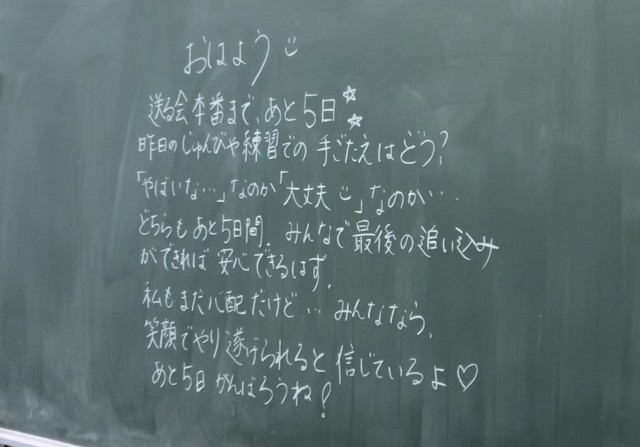 おはよう
送る会本番まで、あと5日
昨日のじゅんびや練習での手ごたえはどう?
「やばいな…」なのか「大丈夫」なのか…
どちらもあと5日間。みんなで最後の追い込み
ができれば安心できるはず。
私もまだ心配だけど…みんななら、
笑顔でやり遂げられると信じているよ♡
あと5日がんばろうね!